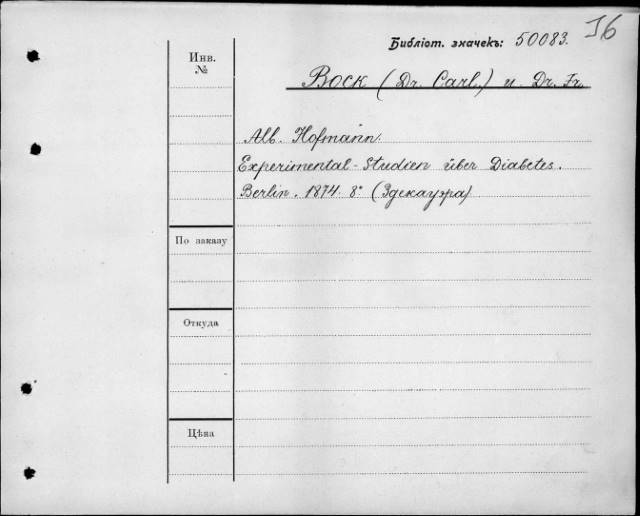 Библіот. значекъ: 50083. I6
Инв.
№
Bock (Dr. Carl.) и Dr. Fr.
Alb. Hofmann.
Experimental-Studien über Diabetes.
Berlin. 1874. 8°. (Здекауэра)
По заказу
Откуда
Цѣна